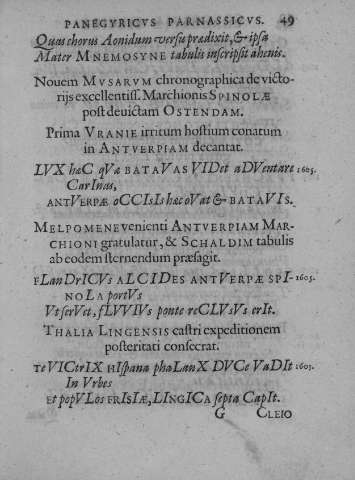 PANEGYRICVS PARNASSICVS. 49
Quas chorus Aonidum versu prædixit, & ipsa
Mater MNEMOSYNE tabulis inscripsit ahenis.
Nouem MVSARVM chronographica de victo-
rijs excellentiss. Marchionis SPINOLÆ
post deuictam OSTENDAM.
Prima VRANIE irritum hostium conatum
in ANTVERPIAM decantat.
LVX hæC qVa BATAVAS VIDet aDVentare 1605.
CarInas,
ANTVERPÆ oCCIsIs hæc oVat & BATAVIS.
MELPOMENE venienti ANTVERPIAM MAR-
CHIONI gratulatur, & SCHALDIM tabulis
ab eodem sternendum præsagit.
FLanDrICVs ALCIDES ANTVERPÆ SPI- 1605.
NOLA portVs
Vt serVet, fLVVIVs ponte reCLVsVs erIt.
THALIA LINGENSIS castri expeditionem
posteritati consecrat.
Te VICtrIX HIspana phaLanX DVCe VaDIt 1605.
In Vrbes
Et popVLos FRISIÆ, LINGICa septa CapIt.
G CLEIO